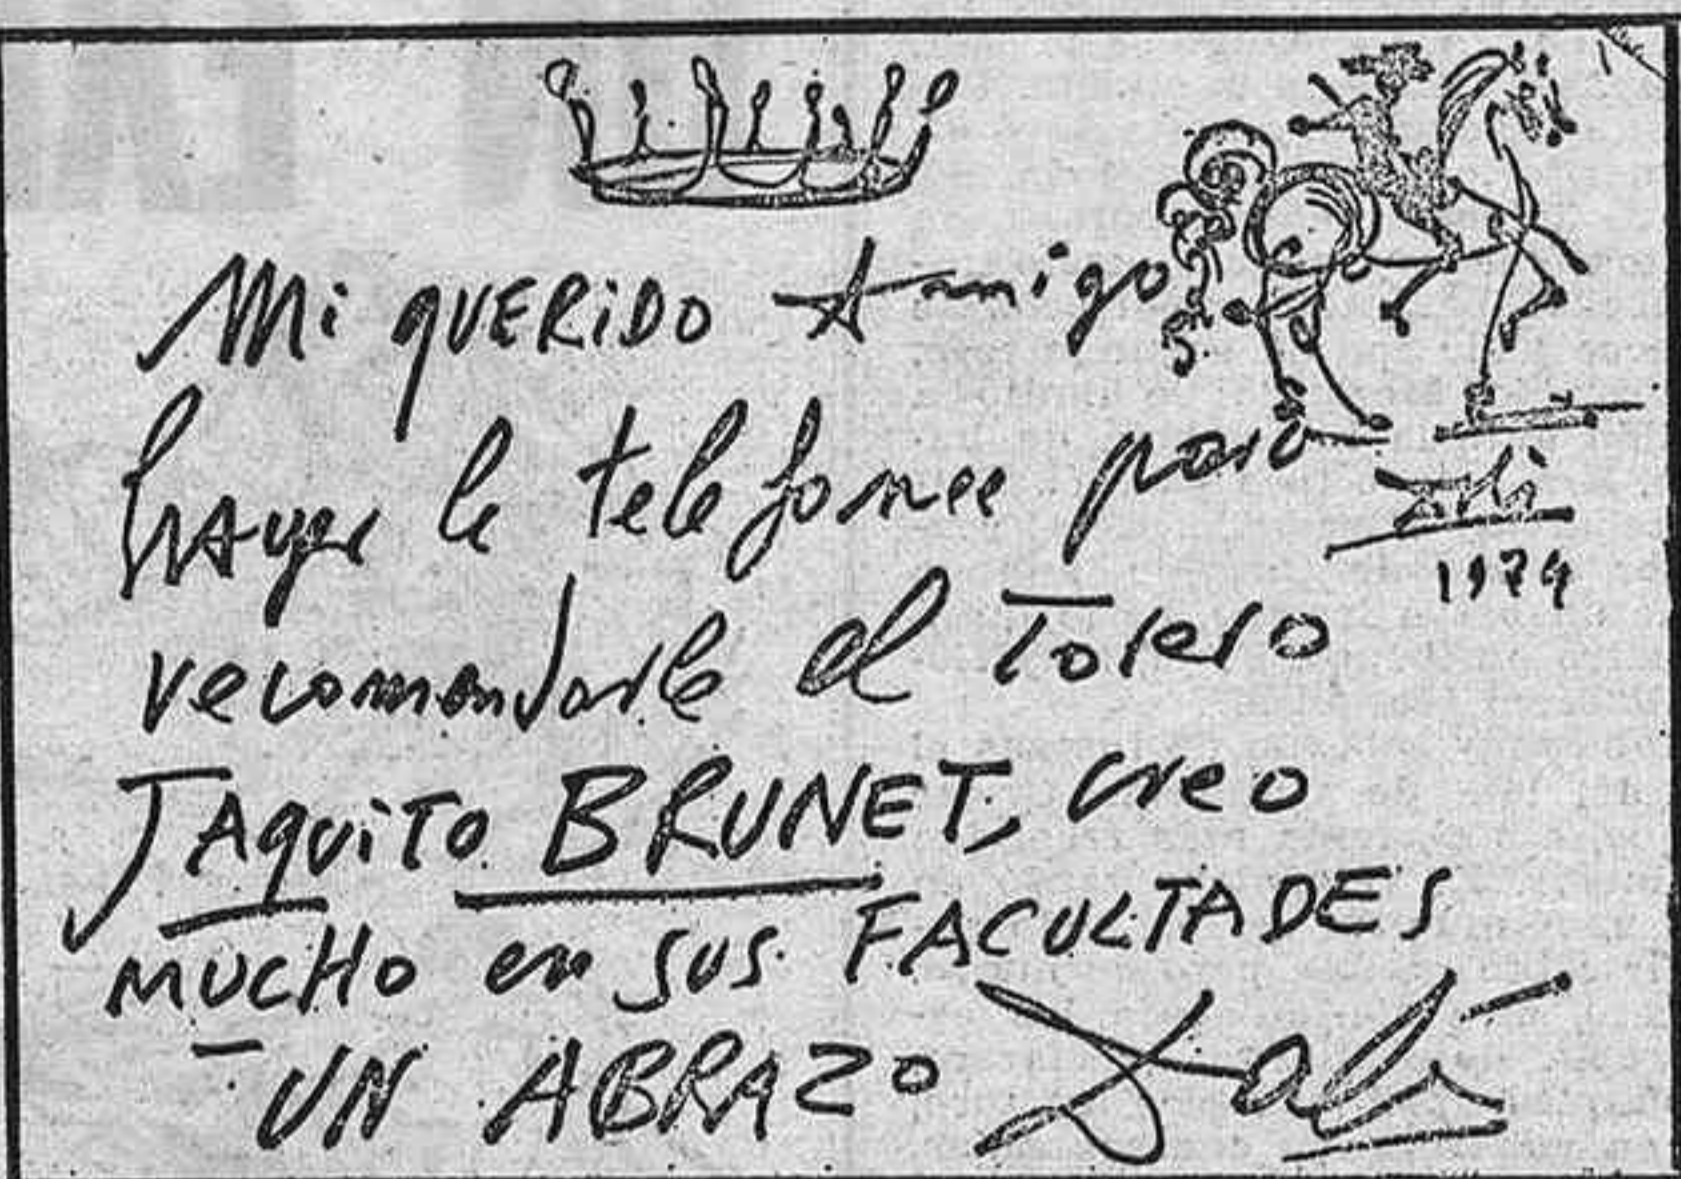 Mi QUERIDO Amigo
hayer le telefonee para
Dalí
1974
recomendarle el Torero
JAQUiTO BRUNET, creo
MUCHO en SUS FACULTADES
- UN ABRAZO Dalí